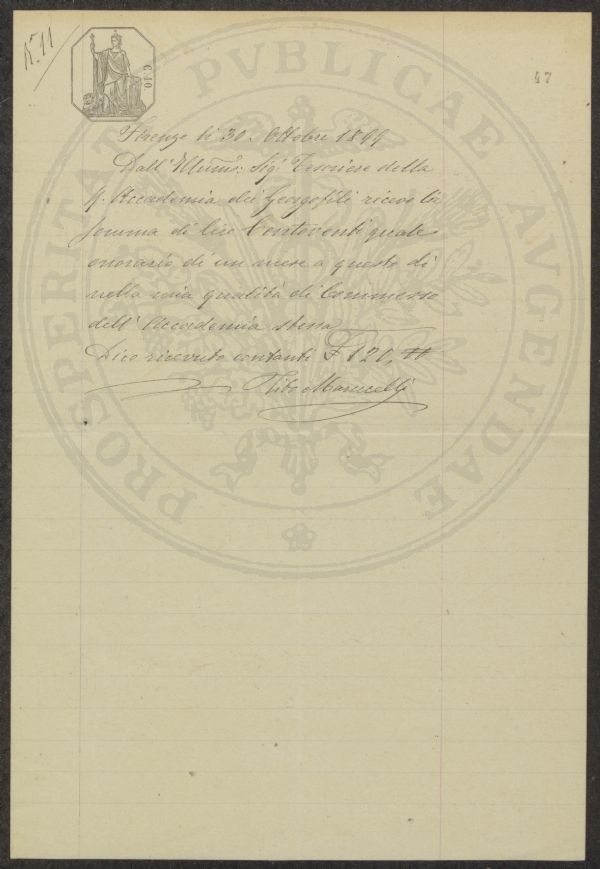 N.° 11
C. 10
47
PROSPERITATI PVBLICAE AVGENDAE
Firenze li 30. Ottobre 1899
Dall' Illuṁo: Sig.r Tesoriere della
R. Accademia dei Georgofili ricevo la
somma di lire Centoventi quale
onorario di un mese a questo dì
nella mia qualità di Commesso
dell' Accademia stessa
Dico ricevuto contanti £ 120, #
Tito Marucelli